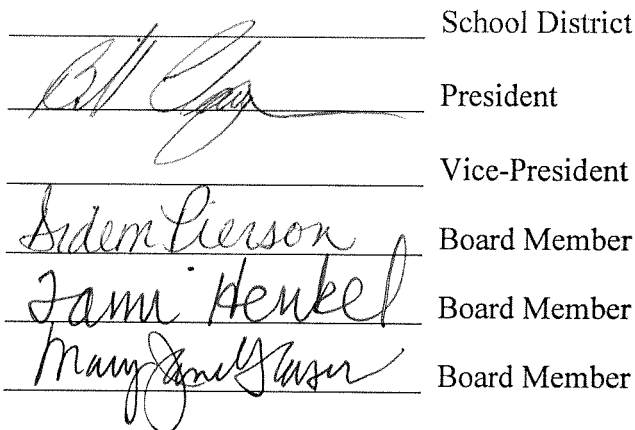 School District
Bill President
Vice-President
Pierson Board Member
Tami Henkel Board Member
Mary Jane Glaser Board Member